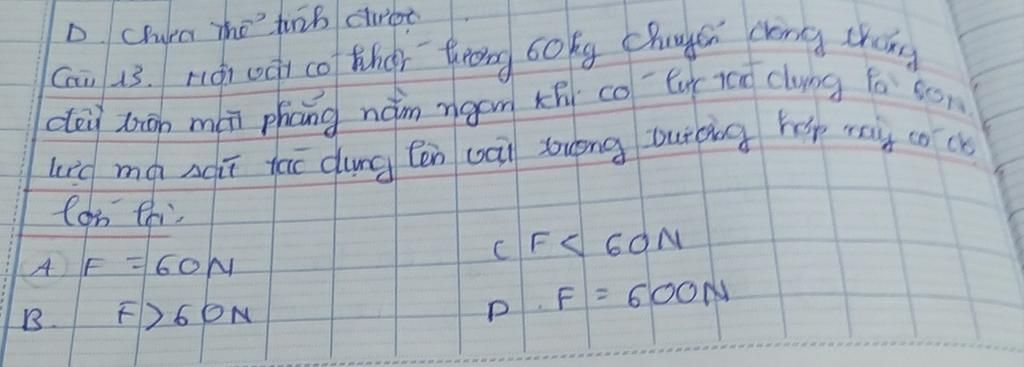 D. Chưa thể tính được
Câu 13. Một vật có khối lượng 60kg chuyển động thẳng
đều trên mặt phẳng nằm ngam khi có lực tác dụng là 60N.
lực ma sát tác dụng lên vật trong trường hợp này có độ
lớn là:
A F = 60N
C F < 60N
B. F > 60N
D. F = 600N